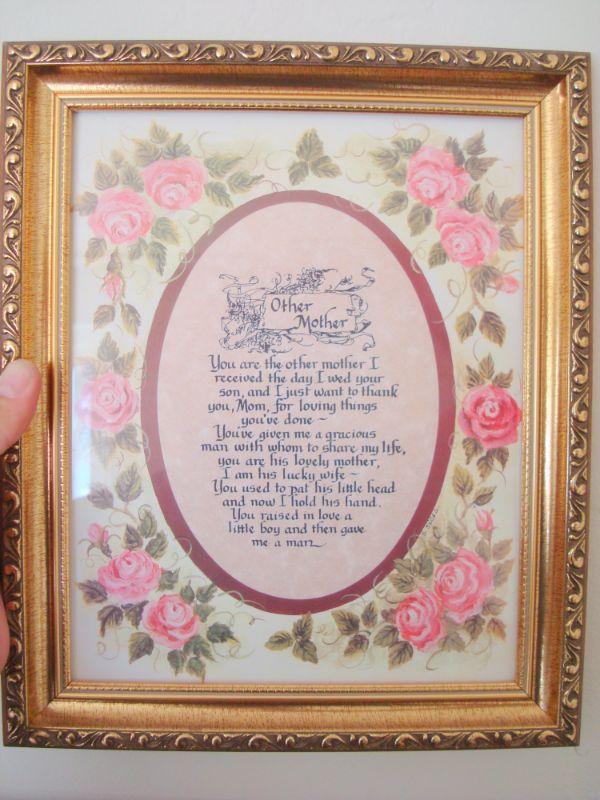 Other
Mother
You are the other mother I
received the day I wed your
son, and I just want to thank
you, Mom, for loving things
you've done ~
You've given me a gracious
man with whom to share my life,
you are his lovely mother,
I am his lucky wife ~
You used to pat his little head
and now I hold his hand.
You raised in love a
little boy and then gave
me a man